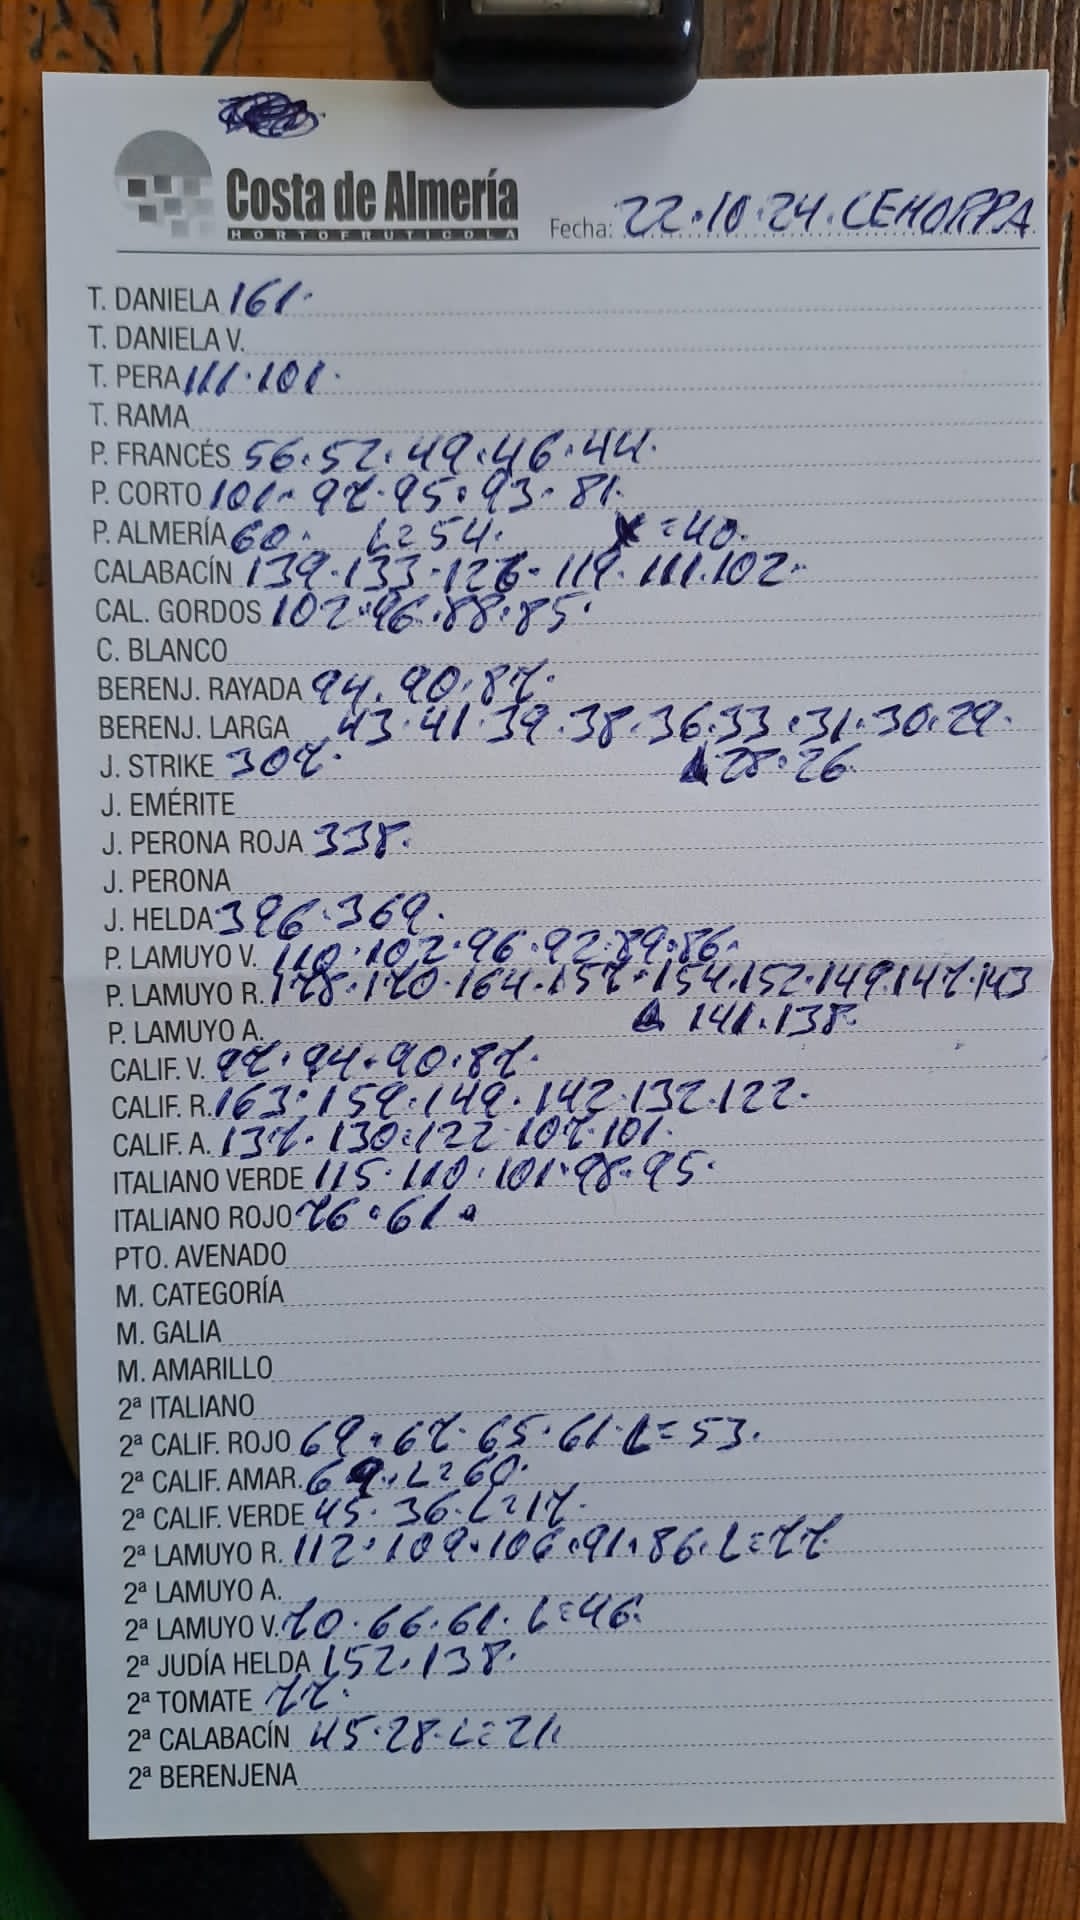 Costa de Almería
HORTOFRUTICOLA
Fecha: 22.10.24. CEHORPA
T. DANIELA 161.
T. DANIELA V.
T. PERA 111.101.
T. RAMA
P. FRANCÉS 56.52.49.46.44.
P. CORTO 101.97.95.93.81.
P. ALMERÍA 60. L=54. X=40.
CALABACÍN 139.133.126.119.111.102.
CAL. GORDOS 102.96.88.85.
C. BLANCO
BERENJ. RAYADA 94.90.87.
BERENJ. LARGA 43.41.39.38.36.33.31.30.29.
J. STRIKE 307. 28.26.
J. EMÉRITE
J. PERONA ROJA 338.
J. PERONA
J. HELDA 396.369.
P. LAMUYO V. 110.102.96.92.89.86.
P. LAMUYO R. 178.170.164.157.154.152.149.147.143
P. LAMUYO A. 141.138.
CALIF. V. 97.94.90.87.
CALIF. R. 163.159.149.142.132.122.
CALIF. A. 137.130.122.107.101.
ITALIANO VERDE 115.110.101.98.95.
ITALIANO ROJO 76.61.
PTO. AVENADO
M. CATEGORÍA
M. GALIA
M. AMARILLO
2ª ITALIANO
2ª CALIF. ROJO 69.67.65.61.L=53.
2ª CALIF. AMAR. 69.L=60.
2ª CALIF. VERDE 45.36.L=17.
2ª LAMUYO R. 112.109.106.91.86.L=77.
2ª LAMUYO A.
2ª LAMUYO V. 70.66.61.L=46.
2ª JUDÍA HELDA 152.138.
2ª TOMATE 77.
2ª CALABACÍN 45.28.L=21.
2ª BERENJENA